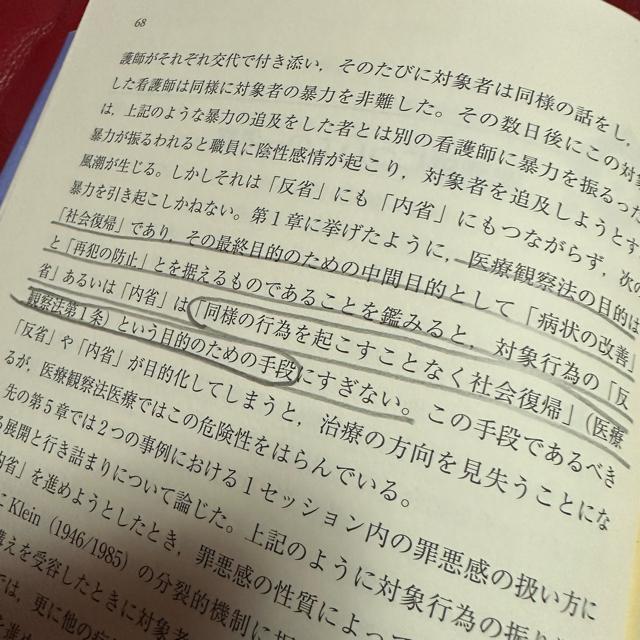 68
護師がそれぞれ交代で付き添い，そのたびに対象者は同様の話をし，
した看護師は同様に対象者の暴力を非難した。その数日後にこの対象
は，上記のような暴力の追及をした者とは別の看護師に暴力を振るった
暴力が振るわれると職員に陰性感情が起こり，対象者を追及しようとす
風潮が生じる。しかしそれは「反省」にも「内省」にもつながらず，次の
暴力を引き起こしかねない。第1章に挙げたように，医療観察法の目的は
「社会復帰」であり，その最終目的のための中間目的として「病状の改善」
と「再犯の防止」とを据えるものであることを鑑みると，対象行為の「反
省」あるいは「内省」は「同様の行為を起こすことなく社会復帰」（医療
観察法第1条）という目的のための手段にすぎない。この手段であるべき
「反省」や「内省」が目的化してしまうと，治療の方向を見失うことにな
るが，医療観察法医療ではこの危険性をはらんでいる。
先の第5章では2つの事例における1セッション内の罪悪感の扱い方に
る展開と行き詰まりについて論じた。上記のように対象行為の振り
内省」を進めようとしたとき，罪悪感の性質によって
に Klein (1946/1985) の分裂的機制に
構えを受容したときに対象者
では，更に他の病
を進め